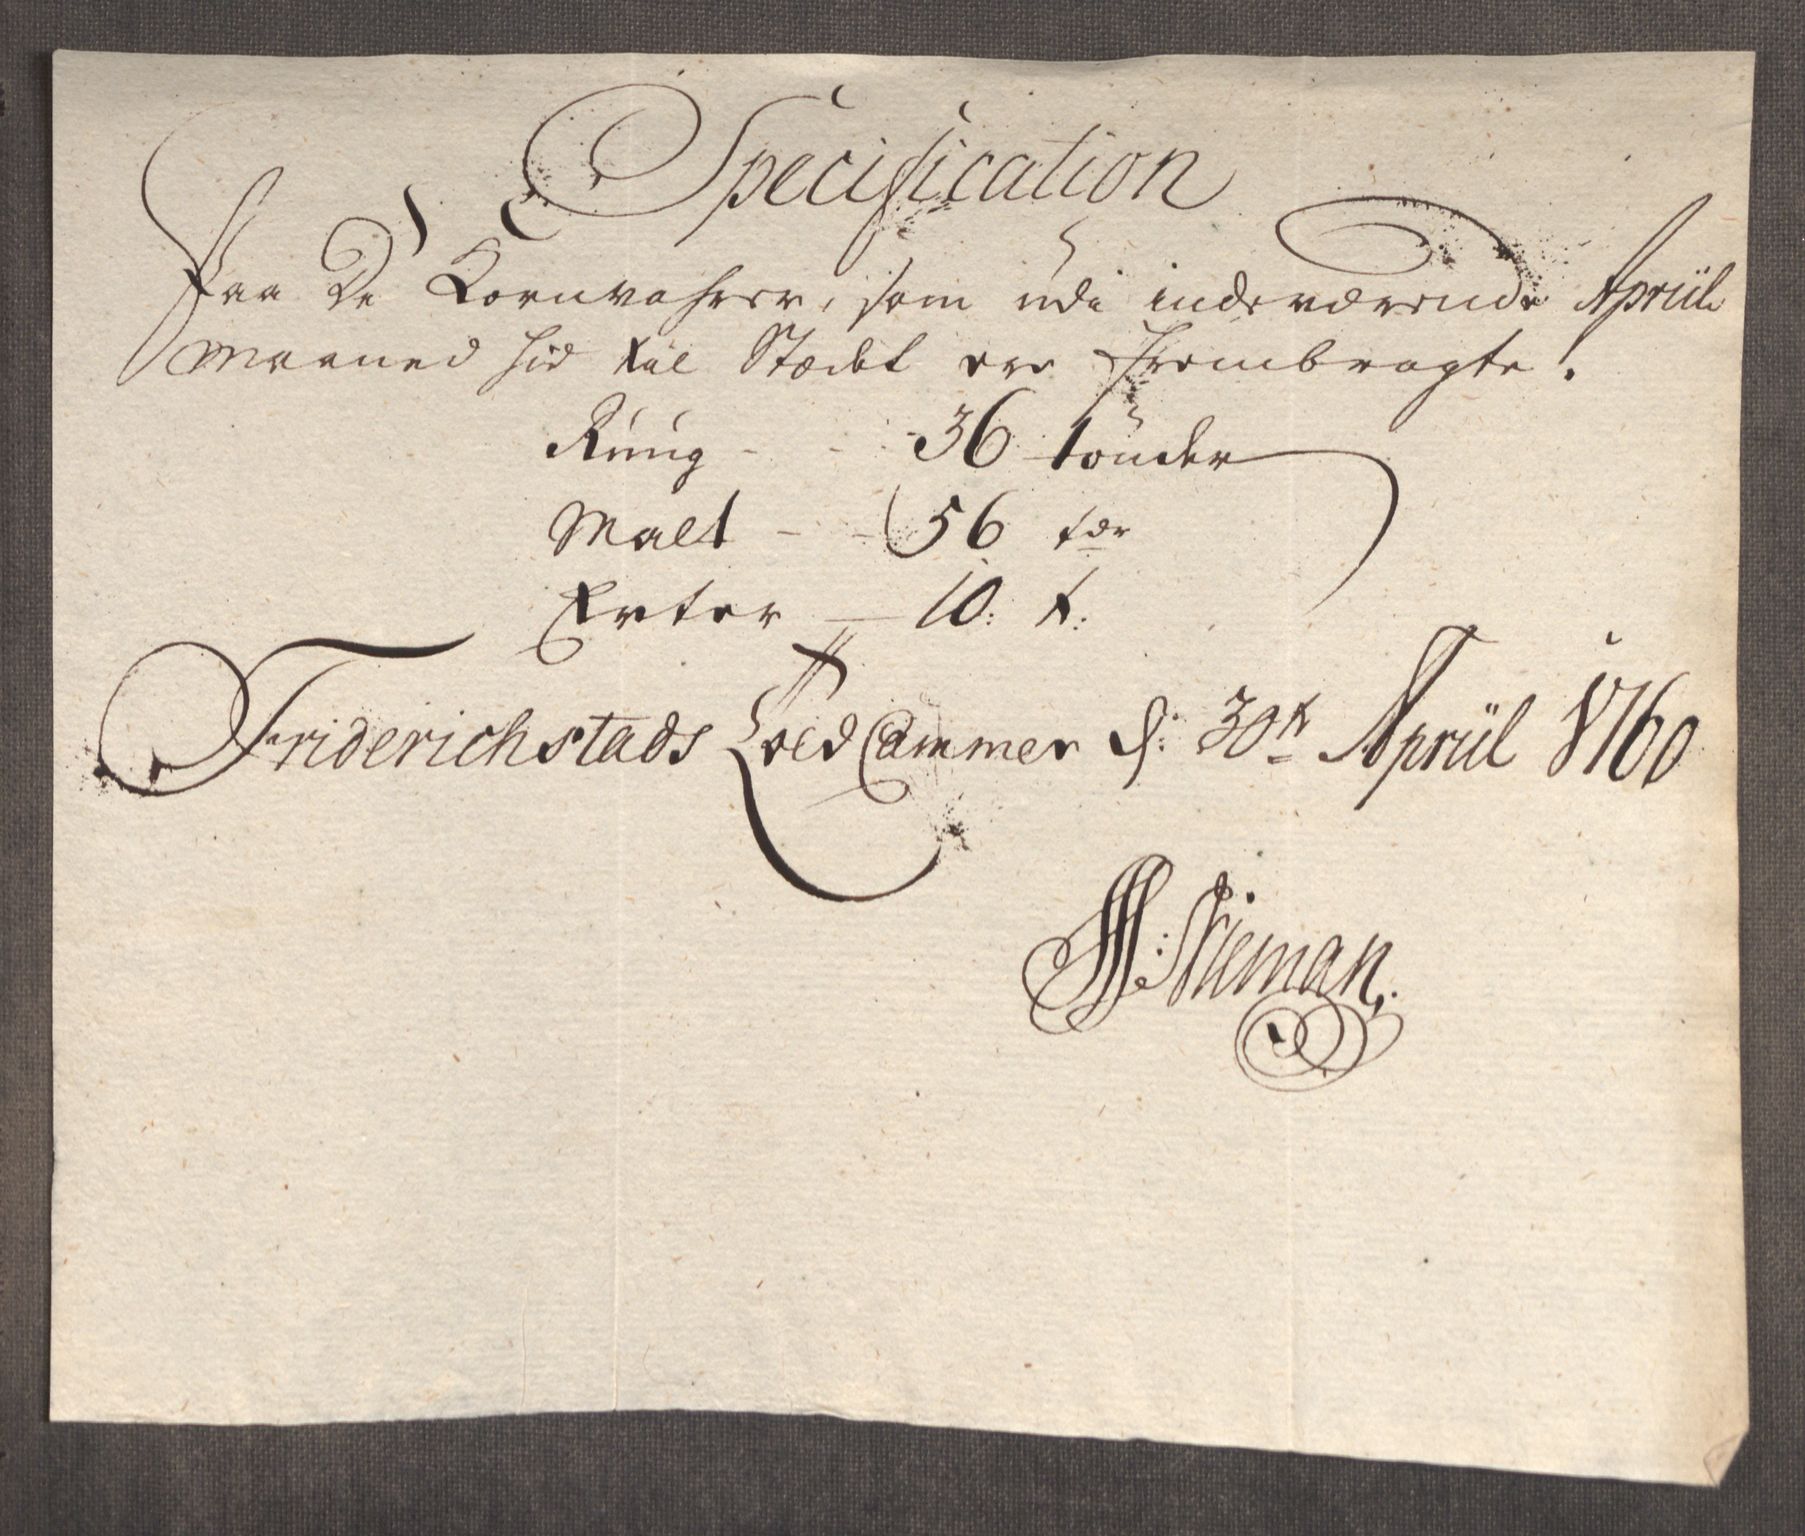 Specification
Paa De Kornvahrer, som udi indeværende Apriil
Maaned hid til Stædet ere frembragte.
Ruug - - 36 tønder
Malt - - 56 tdr
Erter — 10: t:
Friderichstads Told Cammer d: 30te Apriil 1760
Nieman